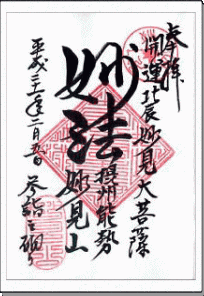 奉拝
開運北辰妙見大菩薩
妙法
摂州能勢
妙見山
平成
年二月
日
参詣之砌